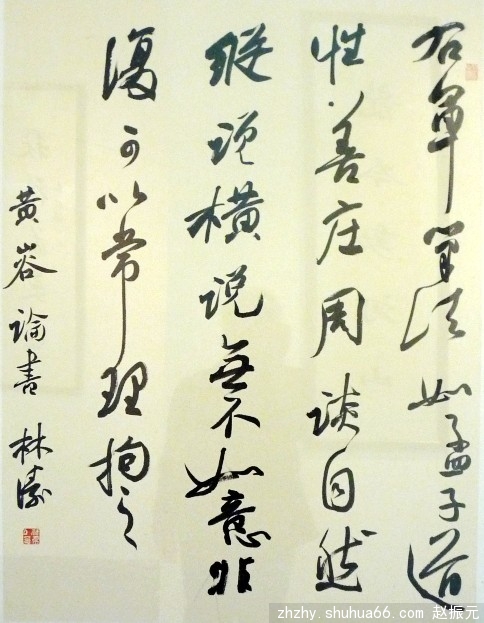 右軍筆法如孟子道
性善庄周談自然
縱說横說無不如意非
復可以常理拘之
黄山谷論書 林濤
zhzhy.shuhua66.com 赵振元